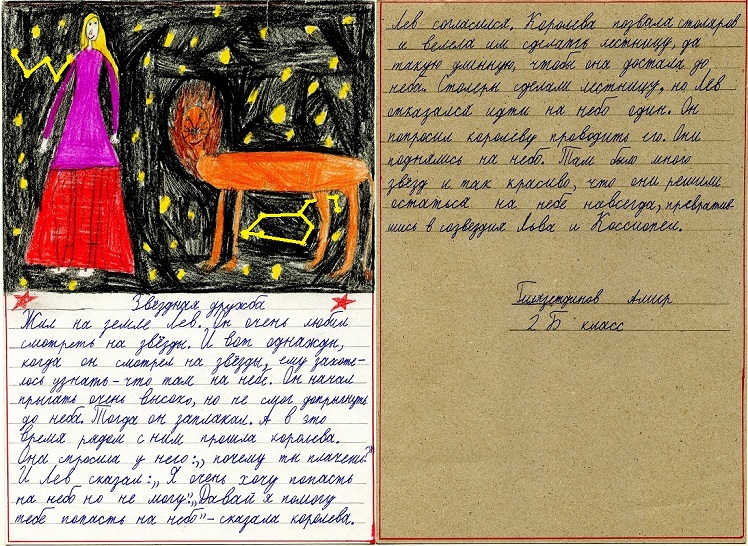 Звёздная дружба
Жил на земле Лев. Он очень любил
смотреть на звёзды. И вот однажды,
когда он смотрел на звёзды, ему захоте-
лось узнать - что там на небе. Он начал
прыгать очень высоко, но не смог допрыгнуть
до неба. Тогда он заплакал. А в это
время рядом с ним прошла королева.
Она спросила у него: „почему ты плачешь?"
И Лев сказал: „Я очень хочу попасть
на небо но не могу." „Давай я помогу
тебе попасть на небо" - сказала королева.
Лев согласился. Королева позвала столяров
и велела им сделать лестницу, да
такую длинную, чтобы она достала до
неба. Столяры сделали лестницу, но Лев
отказался идти на небо один. Он
попросил королеву проводить его. Они
поднялись на небо. Там было много
звёзд и так красиво, что они решили
остаться на небе навсегда, превратив-
шись в созвездия Льва и Кассиопеи.
Гилязетдинов Амир
2 Б класс